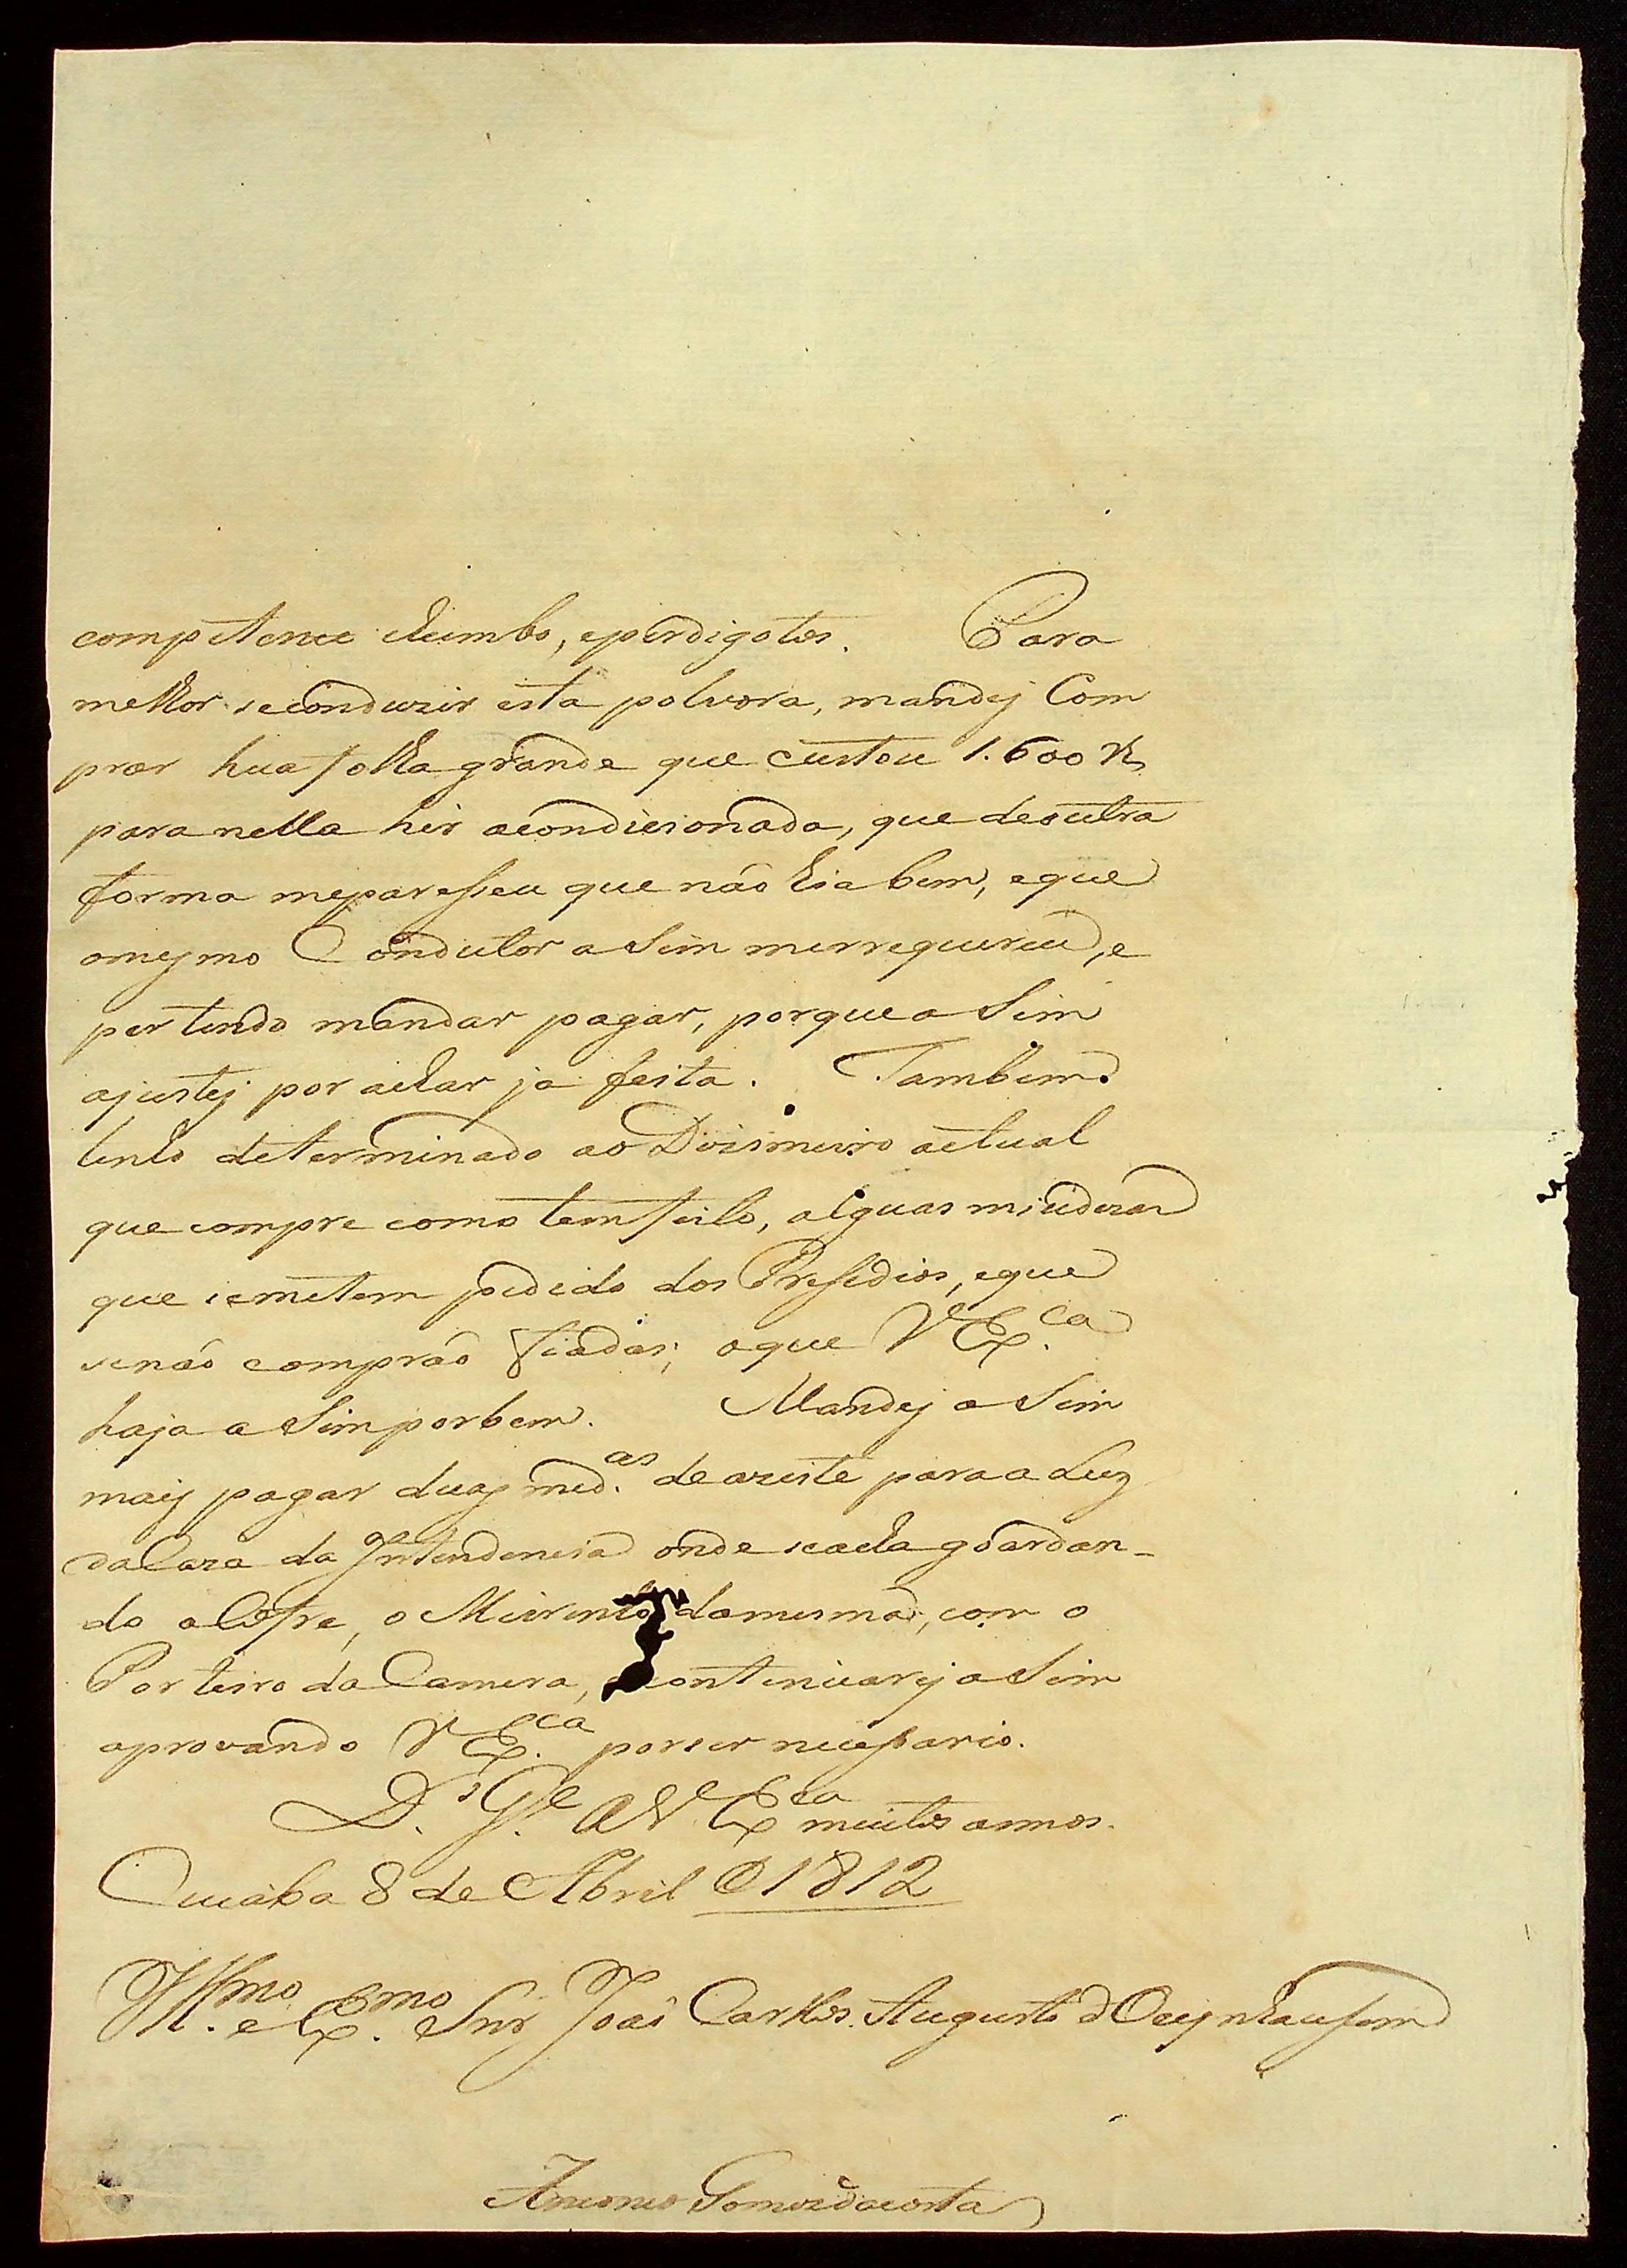 competence chumbo, eperdigotos. Para
melhor seconduzir esta polvora, mandej Com
prar hua folha grande que custou 1.600 rs
para nella hir acondicionada, que deoutra
forma mepareseu que não hia bem, eque
omesmo Condutor asim merrequereu, e
pertendo mandar pagar, porque asim
ajustej por achar ja feita. Tambem
tenho determinado ao Dizimeiro actual
que compre como tem feito, alguas miudezas
que semetem pedido dos Presedios, eque
senão comprão fiadas; oque V Ex.ca
haja asim por bem. Mandej asim
mais pagar duas med.as de azeite para a Luz
da Caza da Intendencia onde seacha goardan-
do o Cofre, o Meirinho damesma, com o
Porteiro da Camera, econtinuarej asim
aprovando V Ex.ca por ser necessario.
D.s G.e a V Ex.ca muitos annos.
Cuiaba 8 de Abril @ 1812
Ill.mo e Ex.mo Snr João Carlos Augusto d Oeynhausem
Antonio Gomes dacosta